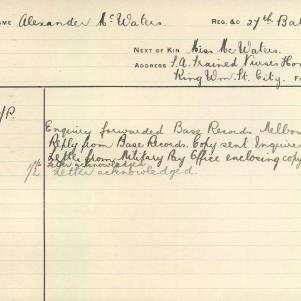 AME Alexander Mc Waters. REG. &c 27th Bat
NEXT OF KIN Miss Mc Waters.
ADDRESS S.A. Trained Nurses Ho
King Wm. St. City. F
/P.
Enquiry forwarded Base Records Melbo
Reply from Base Records. Copy sent Inquire
Letter from Military Pay Office enclosing copy
Letter acknowledged.
Letter acknowledged.